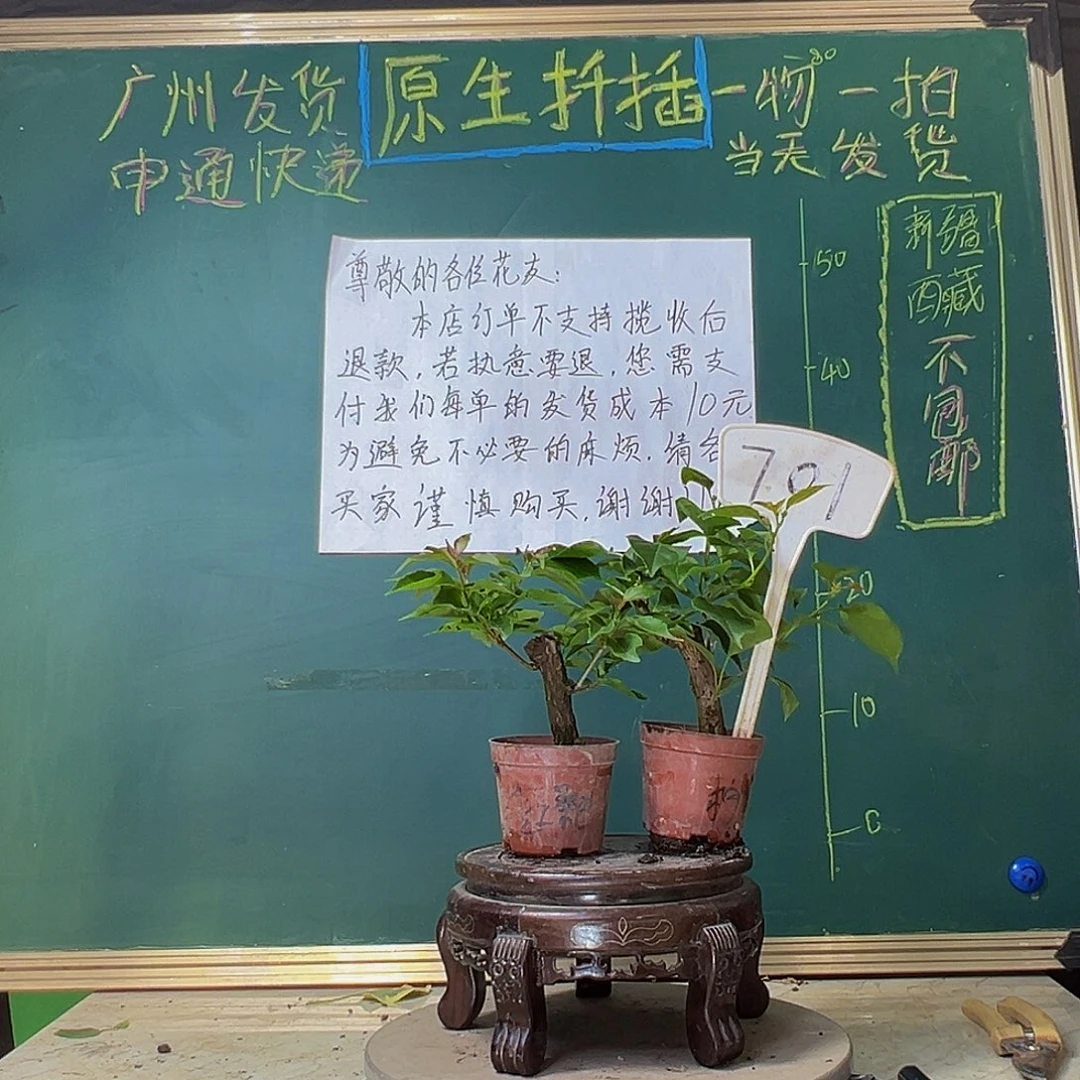 广州发货
申通快递
原生扦插
一物一拍
当天发货
新疆
西藏
不包邮
尊敬的各位花友：
本店订单不支持揽收后
退款，若执意要退，您需支
付我们每单的发货成本10元
为避免不必要的麻烦．请各
买家谨慎购买，谢谢
701
50
40
20
10
0